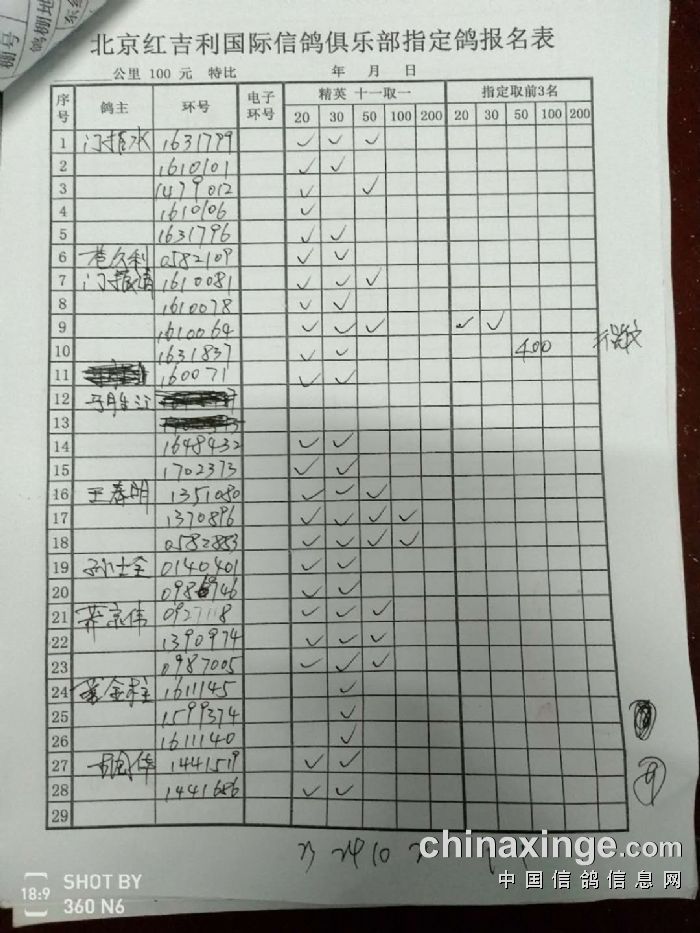 北京红吉利国际信鸽俱乐部指定鸽报名表
公里 100 元 特比 年 月 日
序号 鸽主 环号 电子环号 精英 十一取一 指定取前3名
20 30 50 100 200 20 30 50 100 200
1 门振水 1631799 ✓ ✓ ✓
2 1610101 ✓ ✓
3 1479012 ✓ ✓
4 1610106 ✓
5 1631796 ✓ ✓
6 0582109 ✓ ✓
7 1610081 ✓ ✓ ✓
8 1610078 ✓ ✓
9 1610064 ✓ ✓ ✓ ✓ ✓
10 1631837 ✓ ✓ 400
11 160071 ✓ ✓
12
13
14 1648432 ✓ ✓
15 1702373 ✓ ✓
16 王春明 1351080 ✓ ✓ ✓
17 1370896 ✓ ✓ ✓ ✓
18 0582883 ✓ ✓ ✓ ✓
19 孙士全 0140401 ✓ ✓
20 ✓ ✓
21 京伟 0927118 ✓ ✓ ✓
22 1390974 ✓ ✓ ✓
23 0987005 ✓ ✓ ✓
24 1611145 ✓
25 1599374 ✓
26 1611140 ✓
27 1441519 ✓ ✓
28 1441686 ✓ ✓
29
9
24 10
chinaxinge.com
中国信鸽信息网
18:9
SHOT BY
360 N6